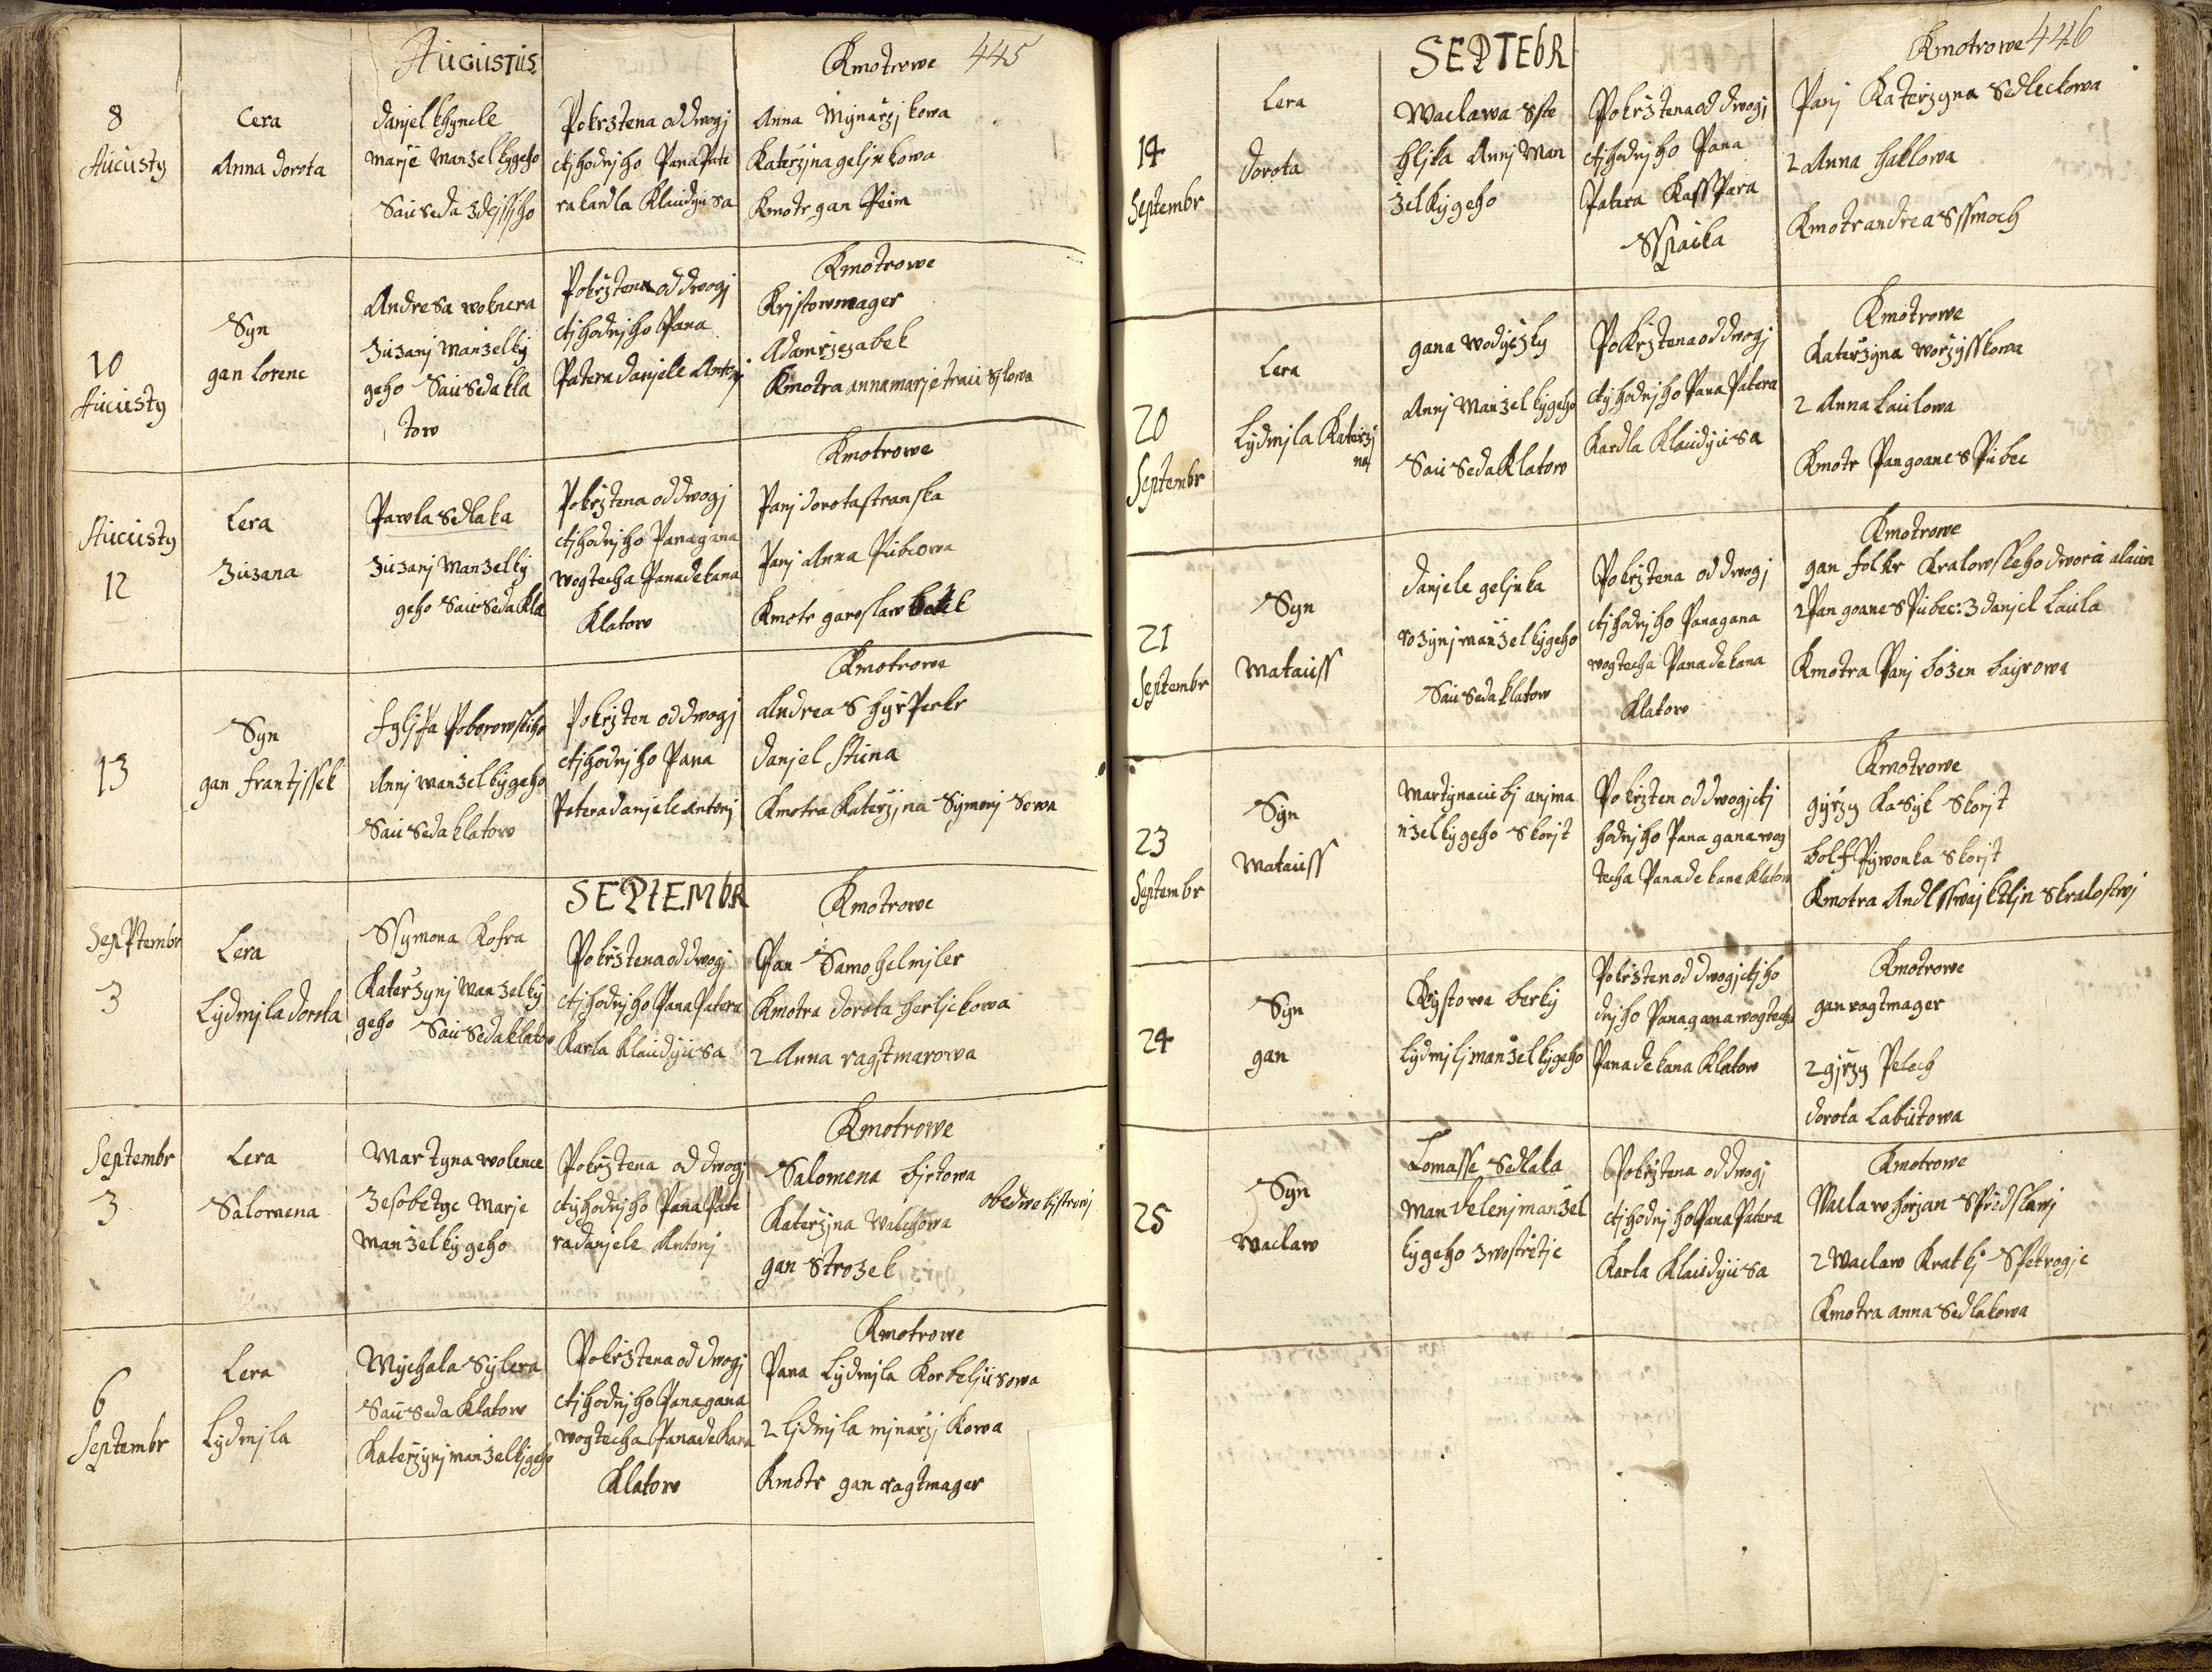 Augustus
Kmotrowe 445
8
Augusty
Cera
Anna dorota
danjel khyncle
marje manzelky geho
Sauseda zdegssyho
Pokrztena od dwogj
ctihodnjho Pana Pate
ra karla Klaudyusa
Anna Mynarzjkowa
Katerzjna geljnkowa
Kmotr gan Peim
10
Augusty
Syn
gan Lorenc
Andresa woknera
Zuzanj manzelky
geho Sauseda kla
tow
Pokrztena od dwogj
ctihodnjho Pana
Patera danjele Antonj
Kmotrowe
Krjstow mager
Adam rzezabek
Kmotra anna marje trauszlowa
Augusty
12
Cera
Zuzana
Pawla Sedlaka
Zuzanj manzelky
geho Sauseda Kla
Pokrztena od dwogj
ctihodnjho Pana gana
wogtecha Pana dekana
Klatow
Kmotrowe
Panj dorota stranska
Panj Anna Pubcowa
Kmotr garoslaw
13
Syn
gan frantjssek
fyljpa Poborowskiho
Annj manzelky geho
Sauseda klatow
Pokrzten od dwogj
ctihodnjho Pana
Patera danjele Antonj
Kmotrowe
Andreas hyrPerkr
danjel Stuna
Kmotra Katerzjna Symonj Sowa
SEPTEMbR
Septembr
3
Cera
Lydmjla dorota
Ssymona Kofra
Katerzynj manzelky
geho Sauseda klatow
Pokrztena od dwogj
ctihodnjho Pana Patera
Karla Klaudyusa
Kmotrowe
Pan Samohel mjler
Kmotra dorota herljckowa
2 Anna ragtmarowa
Septembr
3
Cera
Salomena
Martyna wolence
Zesobetyc Marje
manzelky geho
Pokrztena od dwogj
ctyhodnjho Pana Pate
ra danjele Antonj
Kmotrowe
Salomena bjrtowa
Katerzjna Walchowa
obedwe bystrowj
gan Strozek
6
Septembr
Cera
Lydmjla
Mychala Sylera
Sauseda Klatow
Katerzynj manzelky geho
Pokrztena od dwogj
ctihodnjho Pana gana
wogtecha Pana dekana
Klatow
Kmotrowe
Pana Lydmjla Korbeljusowa
2 lidmjla mjnarzjkowa
Kmotr gan ragtmager
SEPTEbR
Kmotrowe 446
14
Septembr
Cera
dorota
Waclawa Sste
hljka Annj Man
zelky geho
Pokrztena od dwogj
ctihodnjho Pana
Patera Kasspara
Sspacka
Panj Katerzyna Sedleckowa
2 Anna hallowa
Kmotr andreas ssmoch
20
Septembr
Cera
Lydmjla Katerzj
na
gana wodyczky
Annj Manzelky geho
Sauseda Klatow
Pokrztena od dwogj
ctyhodnjho Pana Patera
Kardla Klaudyusa
Kmotrowe
Katerzyna worzjsskowa
2 Anna Laulowa
Kmotr Pan goanes Pubec
21
Septembr
Syn
Matauss
danjele geljnka
rozynj manzelky geho
Sauseda klatow
Pokrztena od dwogj
ctihodnjho Pana gana
wogtecha Pana dekana
Klatow
Kmotrowe
gan folkr Kralowskeho dwora alaun
2 Pan goanes Pubec: 3 danjel Laula
Kmotra Panj bozen bayrowa
23
Septembr
Syn
Matauss
Martyna cubj anj ma
nzelky geho Skorjt
Pokrzten od dwogj ctj
hodnjho Pana gana wog
techa Pana dekana Klatow
Kmotrowe
gyrzy Kasyk Skorjt
bolf Pywonka Skorjt
Kmotra Andl sswaj ktljn skralostwj
24
Syn
gan
Krystowa berky
Lydmjlj manzelky geho
Pokrzten od dwogj ctjho
dnjho Pana gana wogtecha
Pana dekana Klatow
Kmotrowe
gan ragtmager
2 gjrzy Pelech
dorota Labutowa
25
Syn
Waclaw
Tomasse Sedlaka
Mandelenj manzel
ky geho zwostretjc
Pokrztena od dwogj
ctihodnjho Pana Patera
Karla Klaudyusa
Kmotrowe
Waclaw horjan Spredslawj
2 Waclaw Kratkj Spetrogjc
Kmotra anna Sedlakowa